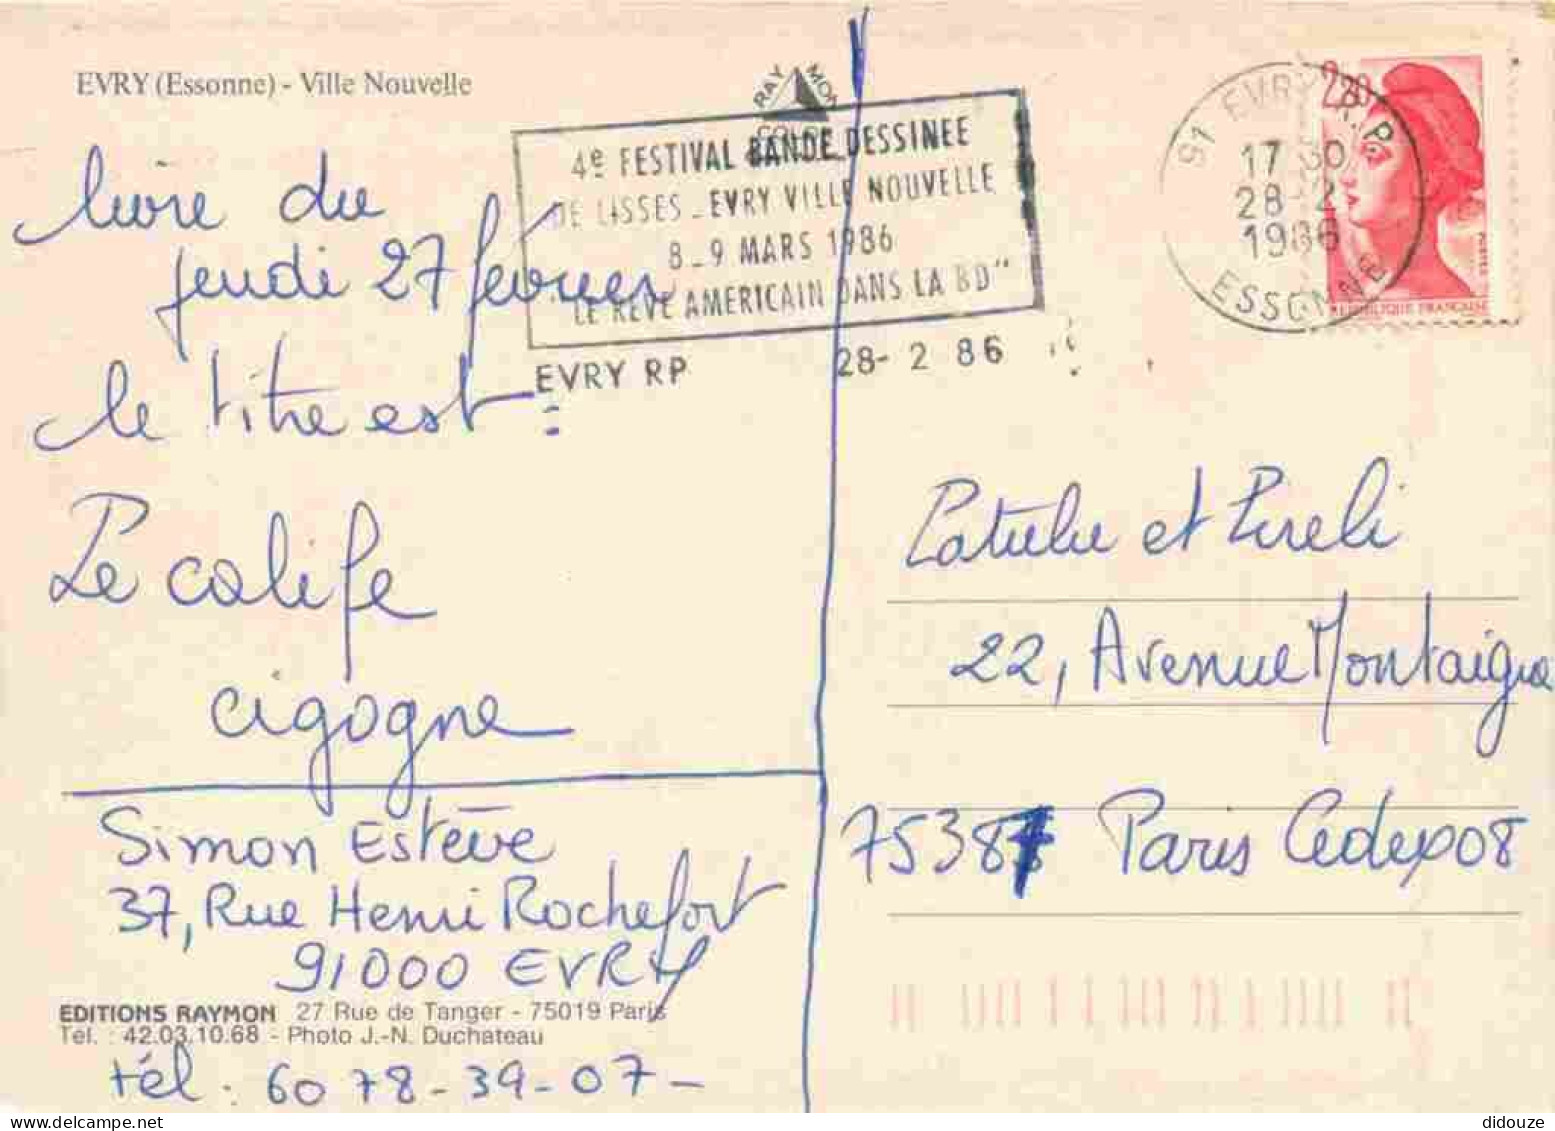 EVRY (Essonne) - Ville Nouvelle
RAYMON
4e FESTIVAL BANDE DESSINEE
DE LISSES - EVRY VILLE NOUVELLE
8-9 MARS 1986
"LE REVE AMERICAIN DANS LA BD"
EVRY RP 28-2 86
91 EVRY R.P
17 30
28-2
1986
ESSONNE
2,20
POSTES
REPUBLIQUE FRANÇAISE
livre du
jeudi 27 février
le titre est :
Le calife
cigogne
Simon Estève
37, Rue Henri Rochefort
91000 EVRY
EDITIONS RAYMON 27 Rue de Tanger - 75019 Paris
Tel. : 42.03.10.68 - Photo J.-N. Duchateau
tél : 60 78-39-07-
Patulu et Pireli
22, Avenue Montaigne
75387 Paris Cedex 08
didouze